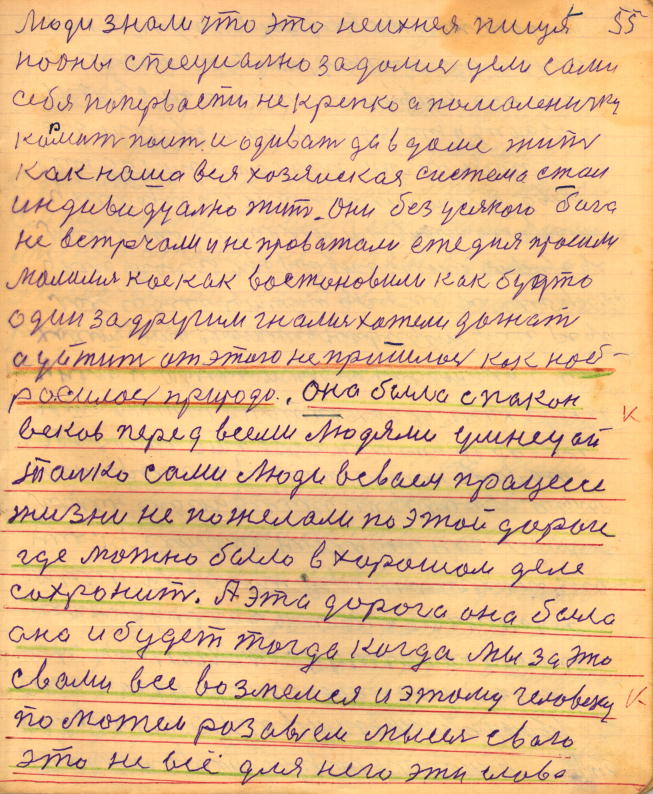 Люди знали что это неихнея пищя 55
нооны специално задолися цели сами
себя поперваети не крепко а помаленичку
кормит поит и одиват да в доме жит
как наша вся хозяиская система стал
индивидуално жит. Они без усякого Бога
не встрчали и не проватали ежедня просили
молилися коекак востоновили как будто
один за другим гналися хотели догнат
а уйтит от этого не пришлося как наб-
росилося природа. Она была спакон
веков перед всеми людями умнецай
толко сами люди всваем працессе
жизни не пожелали по этой дороги
где можно было в хорошом деле
сохронит. А эта дорога она была
она и будет тогда когда мы за это
свами все возмемся и этому человеку
по можем розавем мысля своло
это не всё для него эти слова